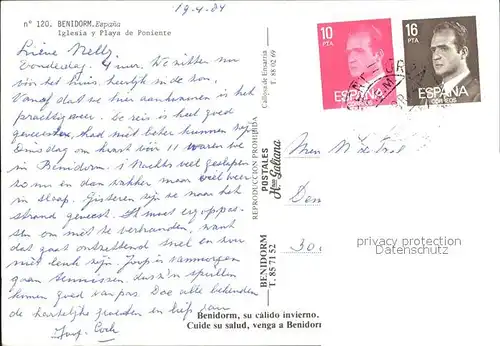 19-4-84
nº 120. BENIDORM. España
Iglesia y Playa de Poniente
Liene Nelly
Donderdag. 4 uur. We zitten nu
voor het huis, heerlijk in de zon.
Vanaf dat we hier aankwamen is het
prachtig weer. De reis is heel goed
geweest, had niet beter kunnen zijn
Dinsdag om kwart voor 11 waren we
in Benidorm. 's Nachts veel geslapen
zo nu en dan wakker maar wel weer
in slaap. Gisteren zijn we naar het
strand geweest. Je moet erg oppas-
sen om niet te verbranden, want
dat gaat ontzettend snel en is
niet leuk zijn. Joop is vanmorgen
gaan tennissen, dus z'n spullen
komen goed van pas. Doe allen bekenden
de hartelijke groeten en liefs van
Joop. Corh
Calinosa de Ensarria
T. 88 02 69
REPRODUCCION PROHIBIDA
POSTALES
Hnos Galiana
BENIDORM
T. 85 71 52
10
PTA
ESPAÑA
16
PTA
ESPAÑA
CORREOS
Den
30
privacy protection
Datenschutz
Benidorm, su cálido invierno.
Cuide su salud, venga a Benidorm